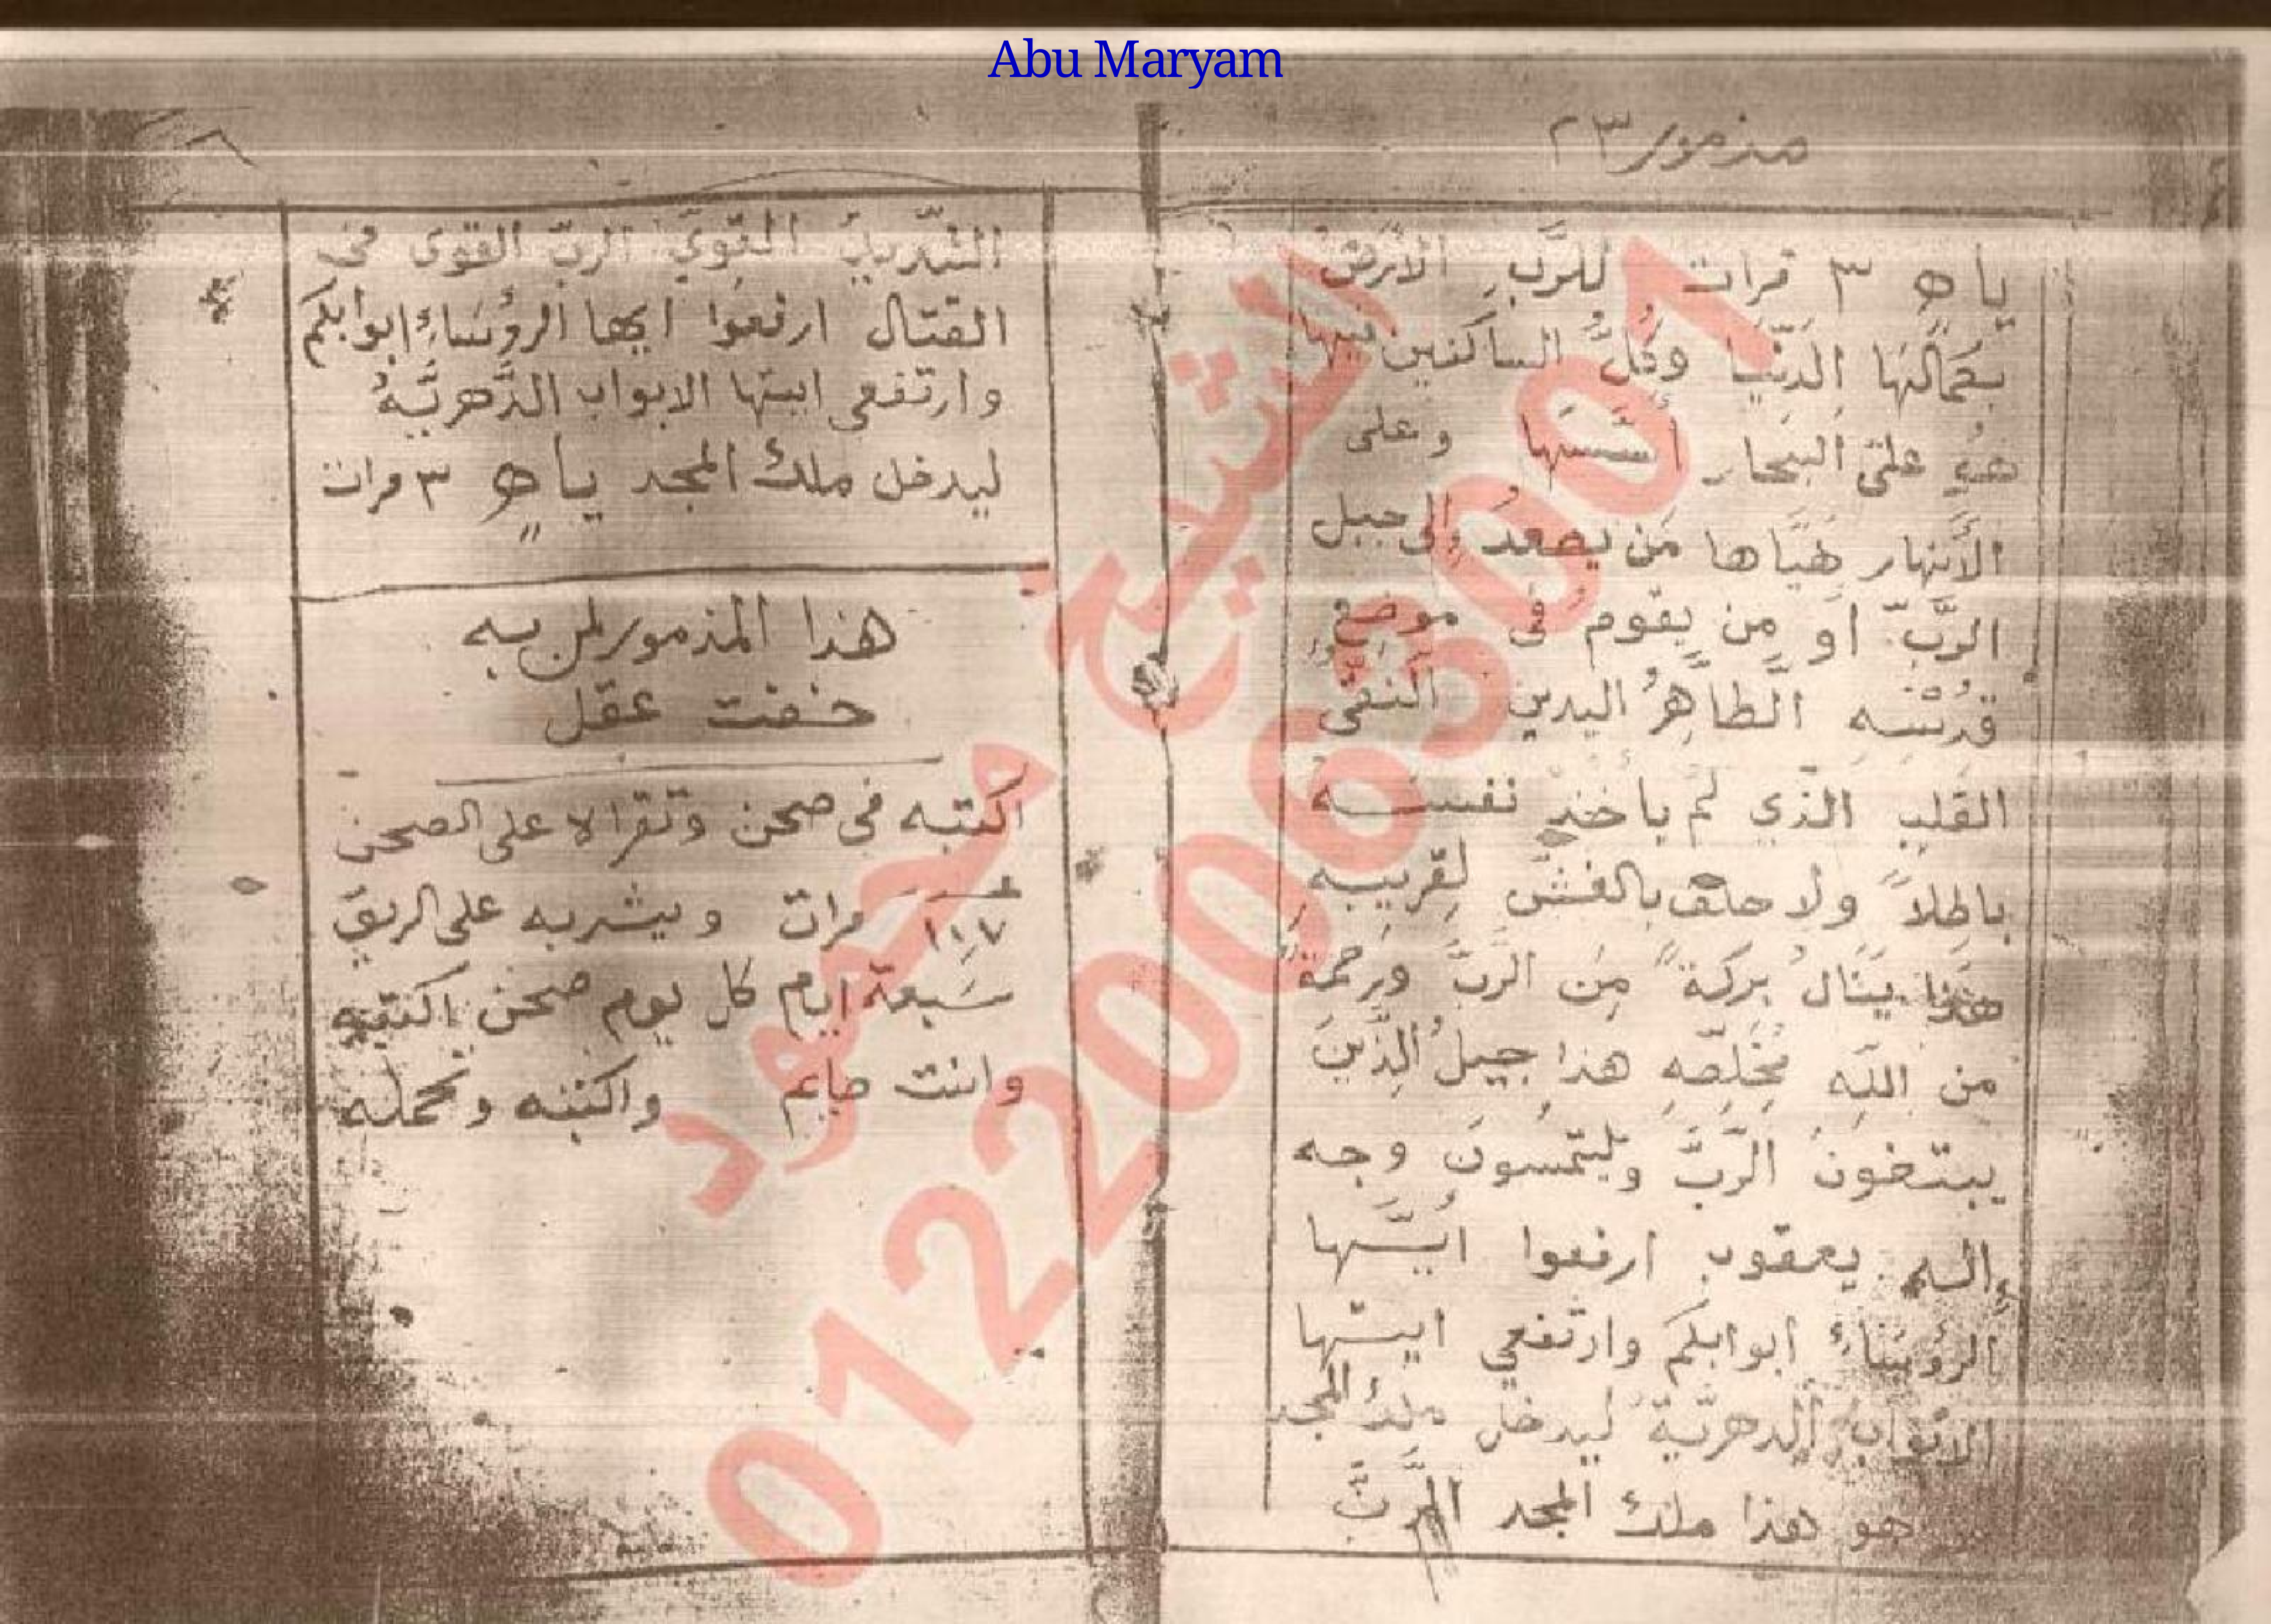 Abu Maryam
مزمور ٢٣
ياه ٣ مرات للرَّب الأرض
بكمالها الدنيا وكُلُّ الساكنين فيها
هو على البحار أسسها وعلى
الأنهار هَيَّاها مَن يصعدُ إلى جبل
الرَّبّ أو مِن يقوم فى موضع
قدسه الطاهرُ اليدين النقى
القلب الذي لَم ياخذ نفسه
باطلاً ولا حلف بالغش لقريبه
هذا ينال بركة من الرب ورحمة
من الله مخلصه هذا جيل الذين
يبتغون الرَّبَّ ويلتمسون وجه
إله يعقوب ارفعوا ايها
الرؤساء ابوابكم وارتفعي ايتها
الابواب الدهرية ليدخل ملك المجد
هو هذا ملك المجد الرب
الشديد القوي الرب القوى فى
القتال ارفعوا ايها الرؤساء ابوابكم
وارتفعى ايتها الابواب الدَّهريَّه
ليدخل ملك المجد ياه ٣ مرات
هذا المزمور لمن به
خفت عقل
اكتبه فى صحن وتقرا لا على الصحن
١١٧ مرات ويشربه على الريق
سبعة ايام كل يوم صحن اكتبه
وانت صايم واكتبه وتحمله
الشيخ محمود
01220063001